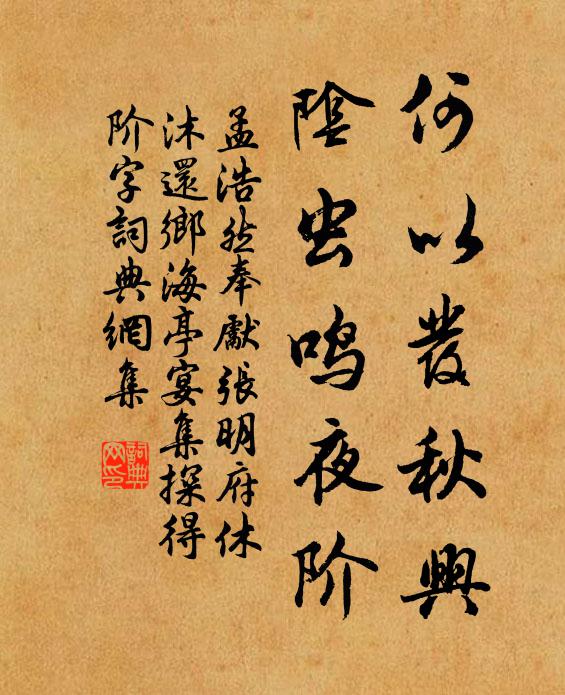 何以發秋興
陰虫鸣夜阶
孟浩然奉獻張明府休
沐還鄉海亭宴集探得
阶字詞典網集
詞典
网印